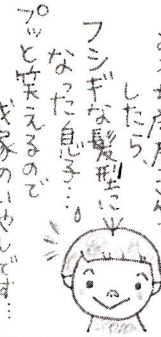 したら
フシギな髪型に
なった息子…!
プッと笑えるので
我家のいやしです…